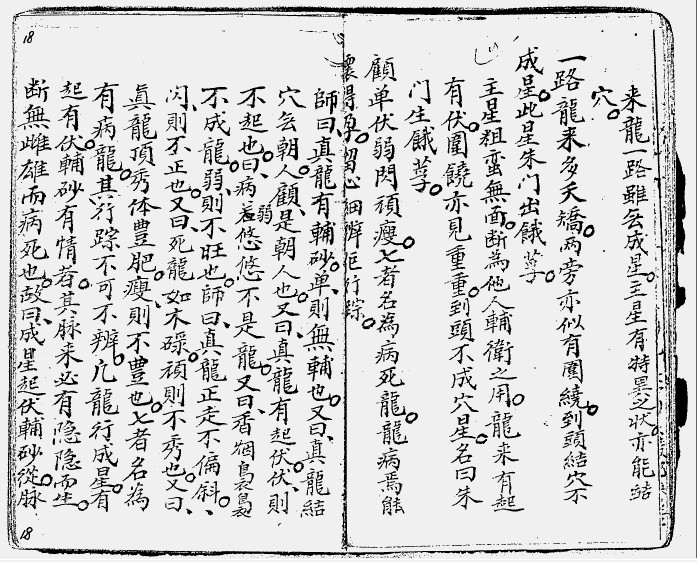 来龍一路雖無成星主星有特異之状亦能結
穴
一路龍来多夭矯两旁亦似有圍繞到頭結穴不
成星此星朱门出餓莩
主星粗蛮無面断為他人輔衛之用龍来有起
有伏圍饒亦見重重到頭不成穴星名曰朱
门生餓莩
顧单伏弱閃頑瘦七者名為病死龍龍病焉能
懷得孕留心細辨伫行踪
師曰真龍有輔砂单則無輔也又曰真龍結
穴無朝人顧是朝人也又曰真龍有起伏伏則
不起也曰病羞弱悠悠不是龍又曰香烟鳥裊
不成龍弱則不旺也師曰真龍正走不偏斜
閃則不正也又曰死龍如木碌頑則不秀也又曰
真龍頂秀体豊肥瘦則不豊也七者名為
有病龍其行踪不可不辨凢龍行成星有
起有伏輔砂有情者其脉来必有隐隐而生
断無雌雄而病死也故曰成星起伏輔砂從脉
18
18